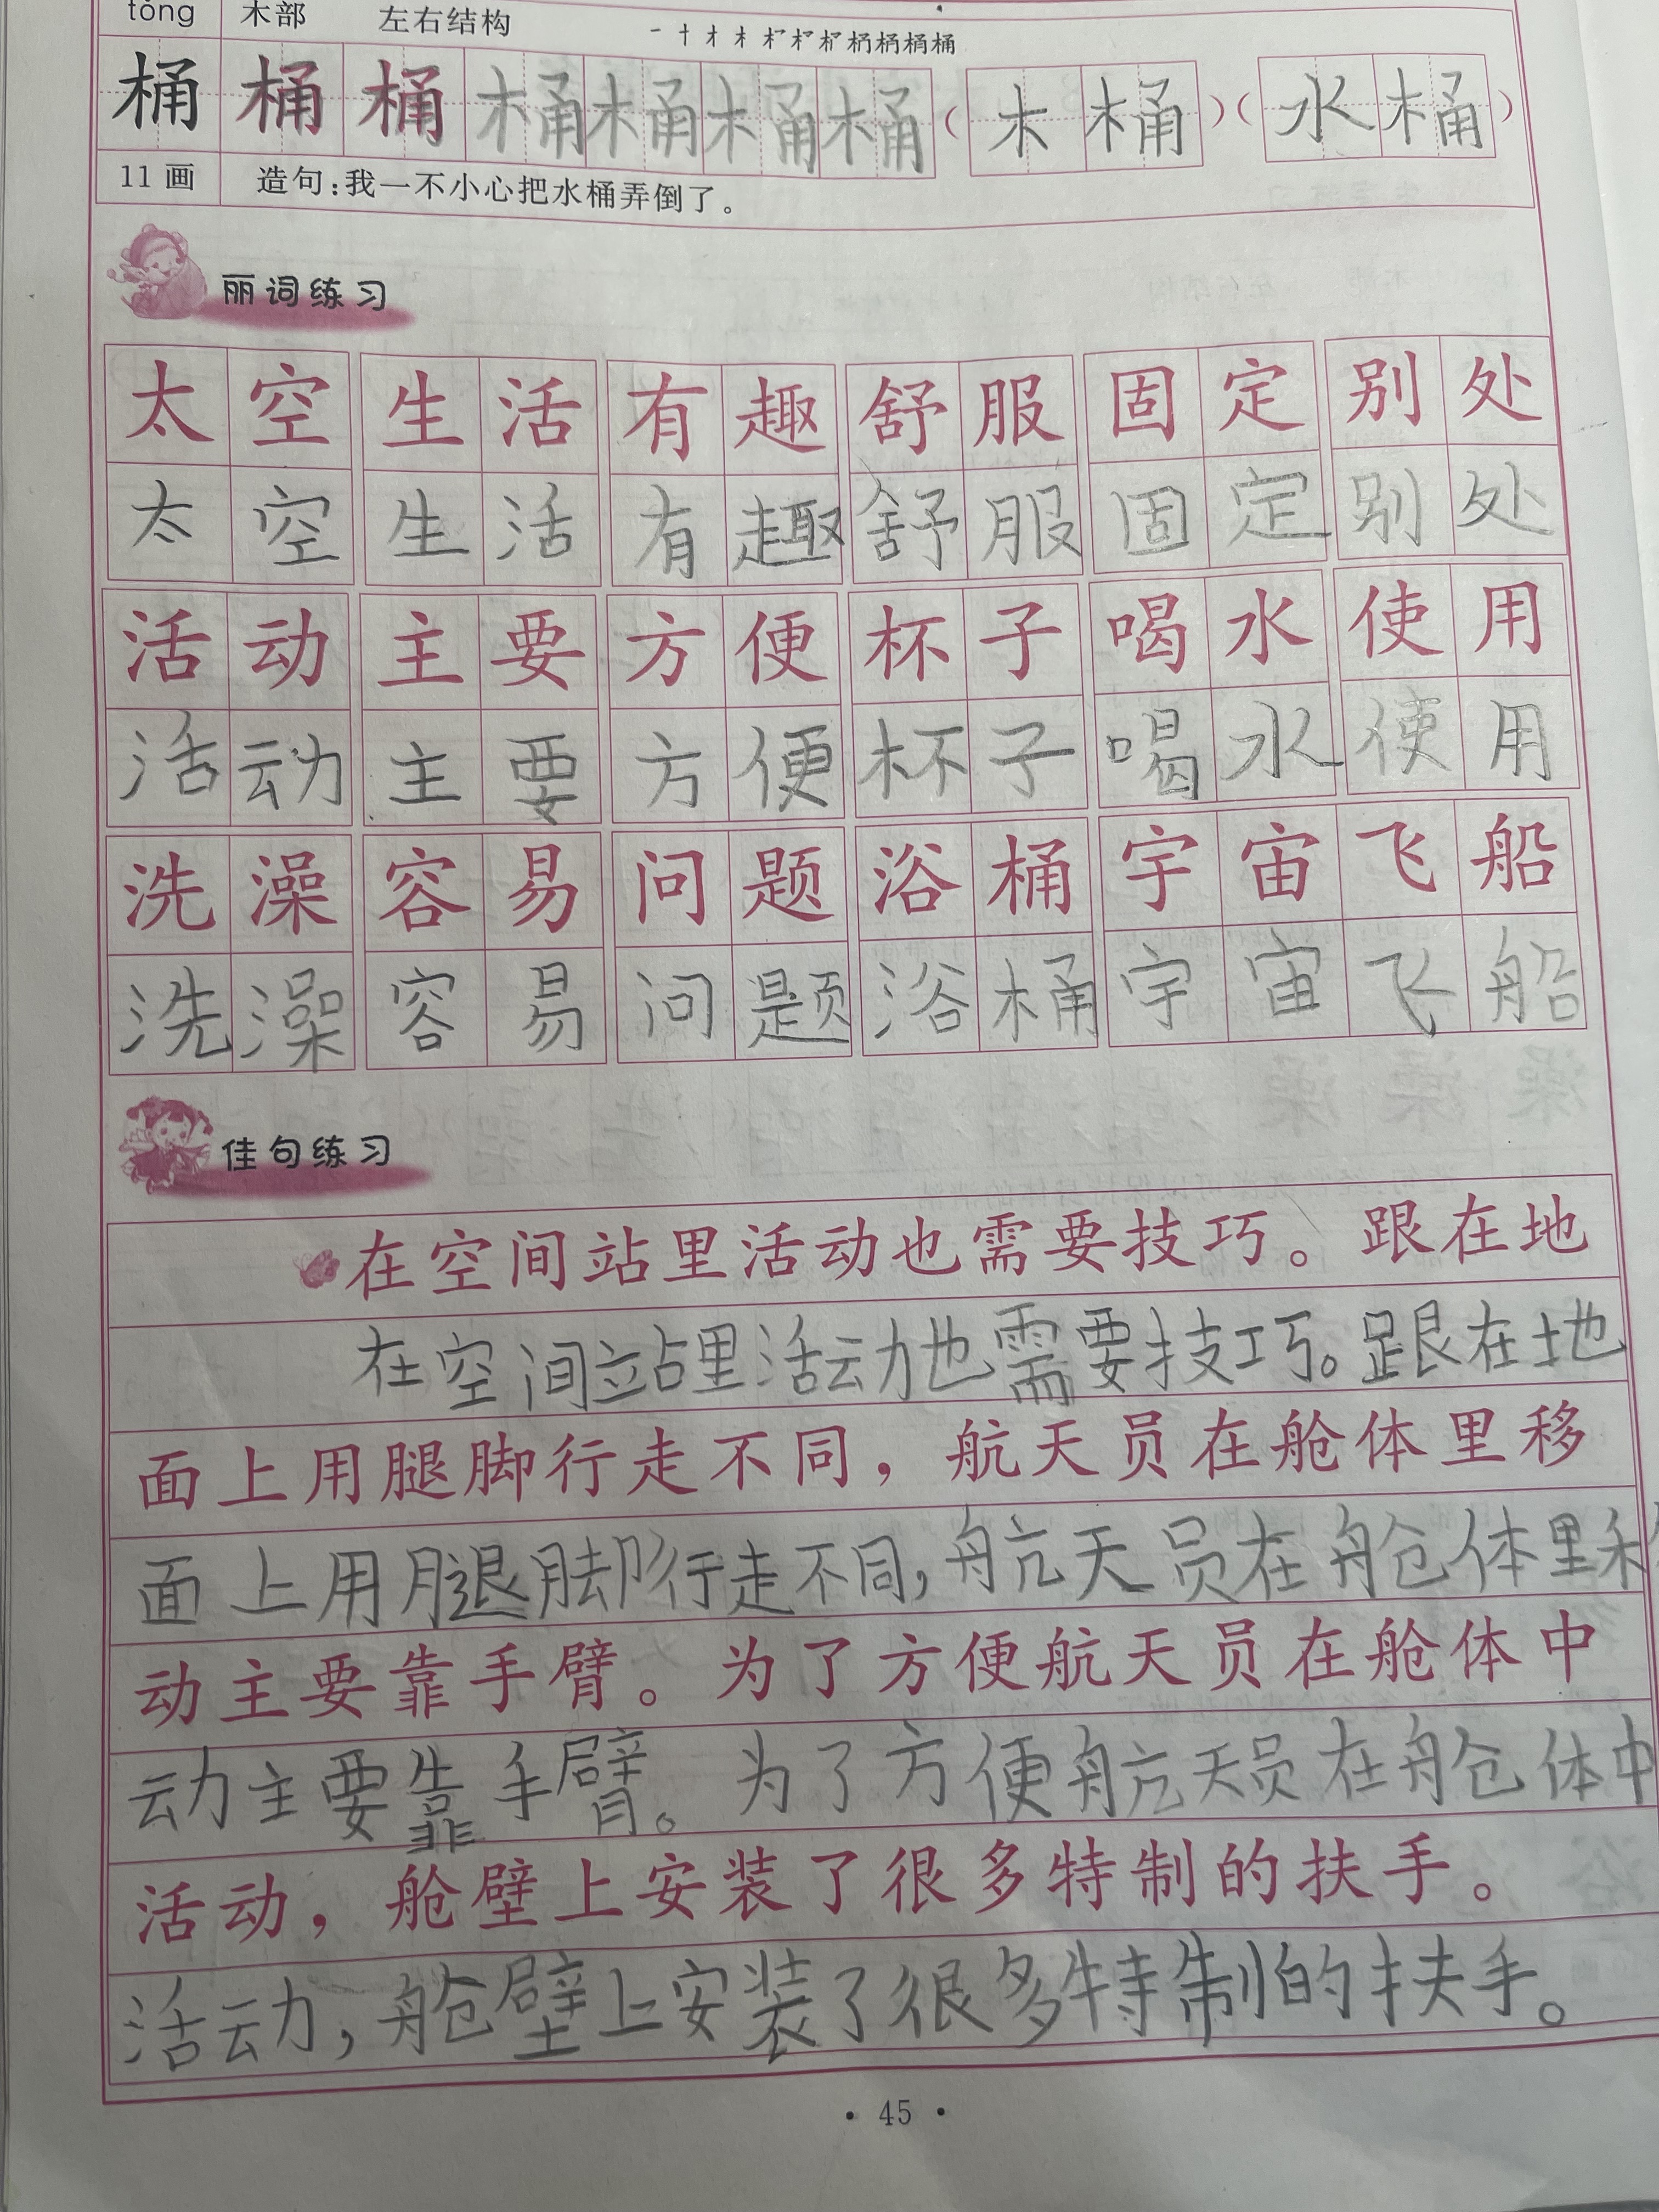 tǒng 木部 左右结构
桶 桶 桶 桶 桶 桶 桶 (木桶) (水桶)
11画 造句：我一不小心把水桶弄倒了。
丽词练习
太空 生活 有趣 舒服 固定 别处
太空 生活 有趣 舒服 固定 别处
活动 主要 方便 杯子 喝水 使用
活动 主要 方便 杯子 喝水 使用
洗澡 容易 问题 浴桶 宇宙飞船
洗澡 容易 问题 浴桶 宇宙飞船
佳句练习
在空间站里活动也需要技巧。跟在地
在空间站里活动也需要技巧。跟在地
面上用腿脚行走不同，航天员在舱体里移
面上用腿脚行走不同，航天员在舱体里移
动主要靠手臂。为了方便航天员在舱体中
动主要靠手臂。为了方便航天员在舱体中
活动，舱壁上安装了很多特制的扶手。
活动，舱壁上安装了很多特制的扶手。
·45·